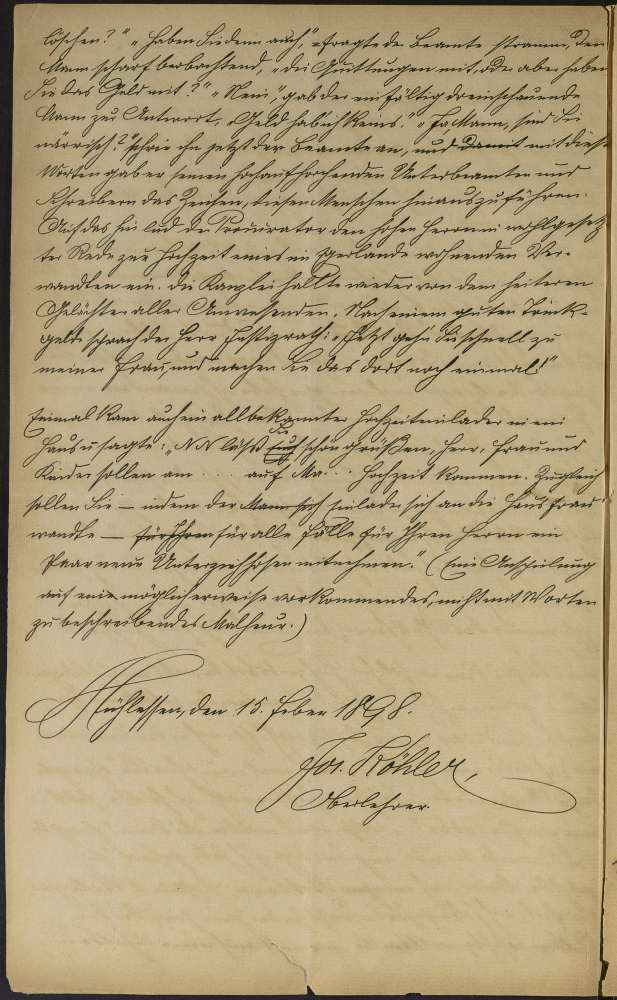 löschen?" „Haben Sie denn auch," fragte der Beamte stramm, den
Mann scharf beobachtend, „die Quittungen mit, oder aber haben
Sie das Geld mit?" „Nein", gab der einfältig dreinschauende
Mann zur Antwort, „Geld hab ich keines." „Ja Mann, sind Sie
närrisch?" schrie ihn jetzt der Beamte an, und damit mit diesen
Worten gab er seinen hochaufhorchenden Unterbeamten und
Schreibern das Zeichen, diesen Menschen hinauszuführen.
Auf das hin lud der Procurator den hohen Herrn in wohlgesetz-
ter Rede zur Hochzeit eines im Egerlande wohnenden Ver-
wandten ein. Die Kanzlei hallte wieder von dem heiteren
Gelächter aller Anwesenden. Nach einem guten Trink-
gelde sprach der Herr Justizrath: „Jetzt gehn Sie schnell zu
meiner Frau, und machen Sie das dort noch einmal!"
Einmal kam auch ein allbekannter Hochzeitseinlader in ein
Haus u sagte: „N N läßt Euch Sie schön grüßen, Herr, Frau und
Kinder sollen am . . . auf Ma... Hochzeit kommen. Zugleich
sollen Sie — indem der Mann sich Einlader sich an die Hausfrau
wandte — für Ihren für alle Fälle für Ihren Herrn ein
Paar neue Unterziehhosen mitnehmen." (Eine Anspielung
auf ein möglicherweise vorkommendes, nicht mit Worten
zu beschreibendes Malheur.)
Mühlessen, den 15. Feber 1898.
Jos. Köhler,
Oberlehrer.